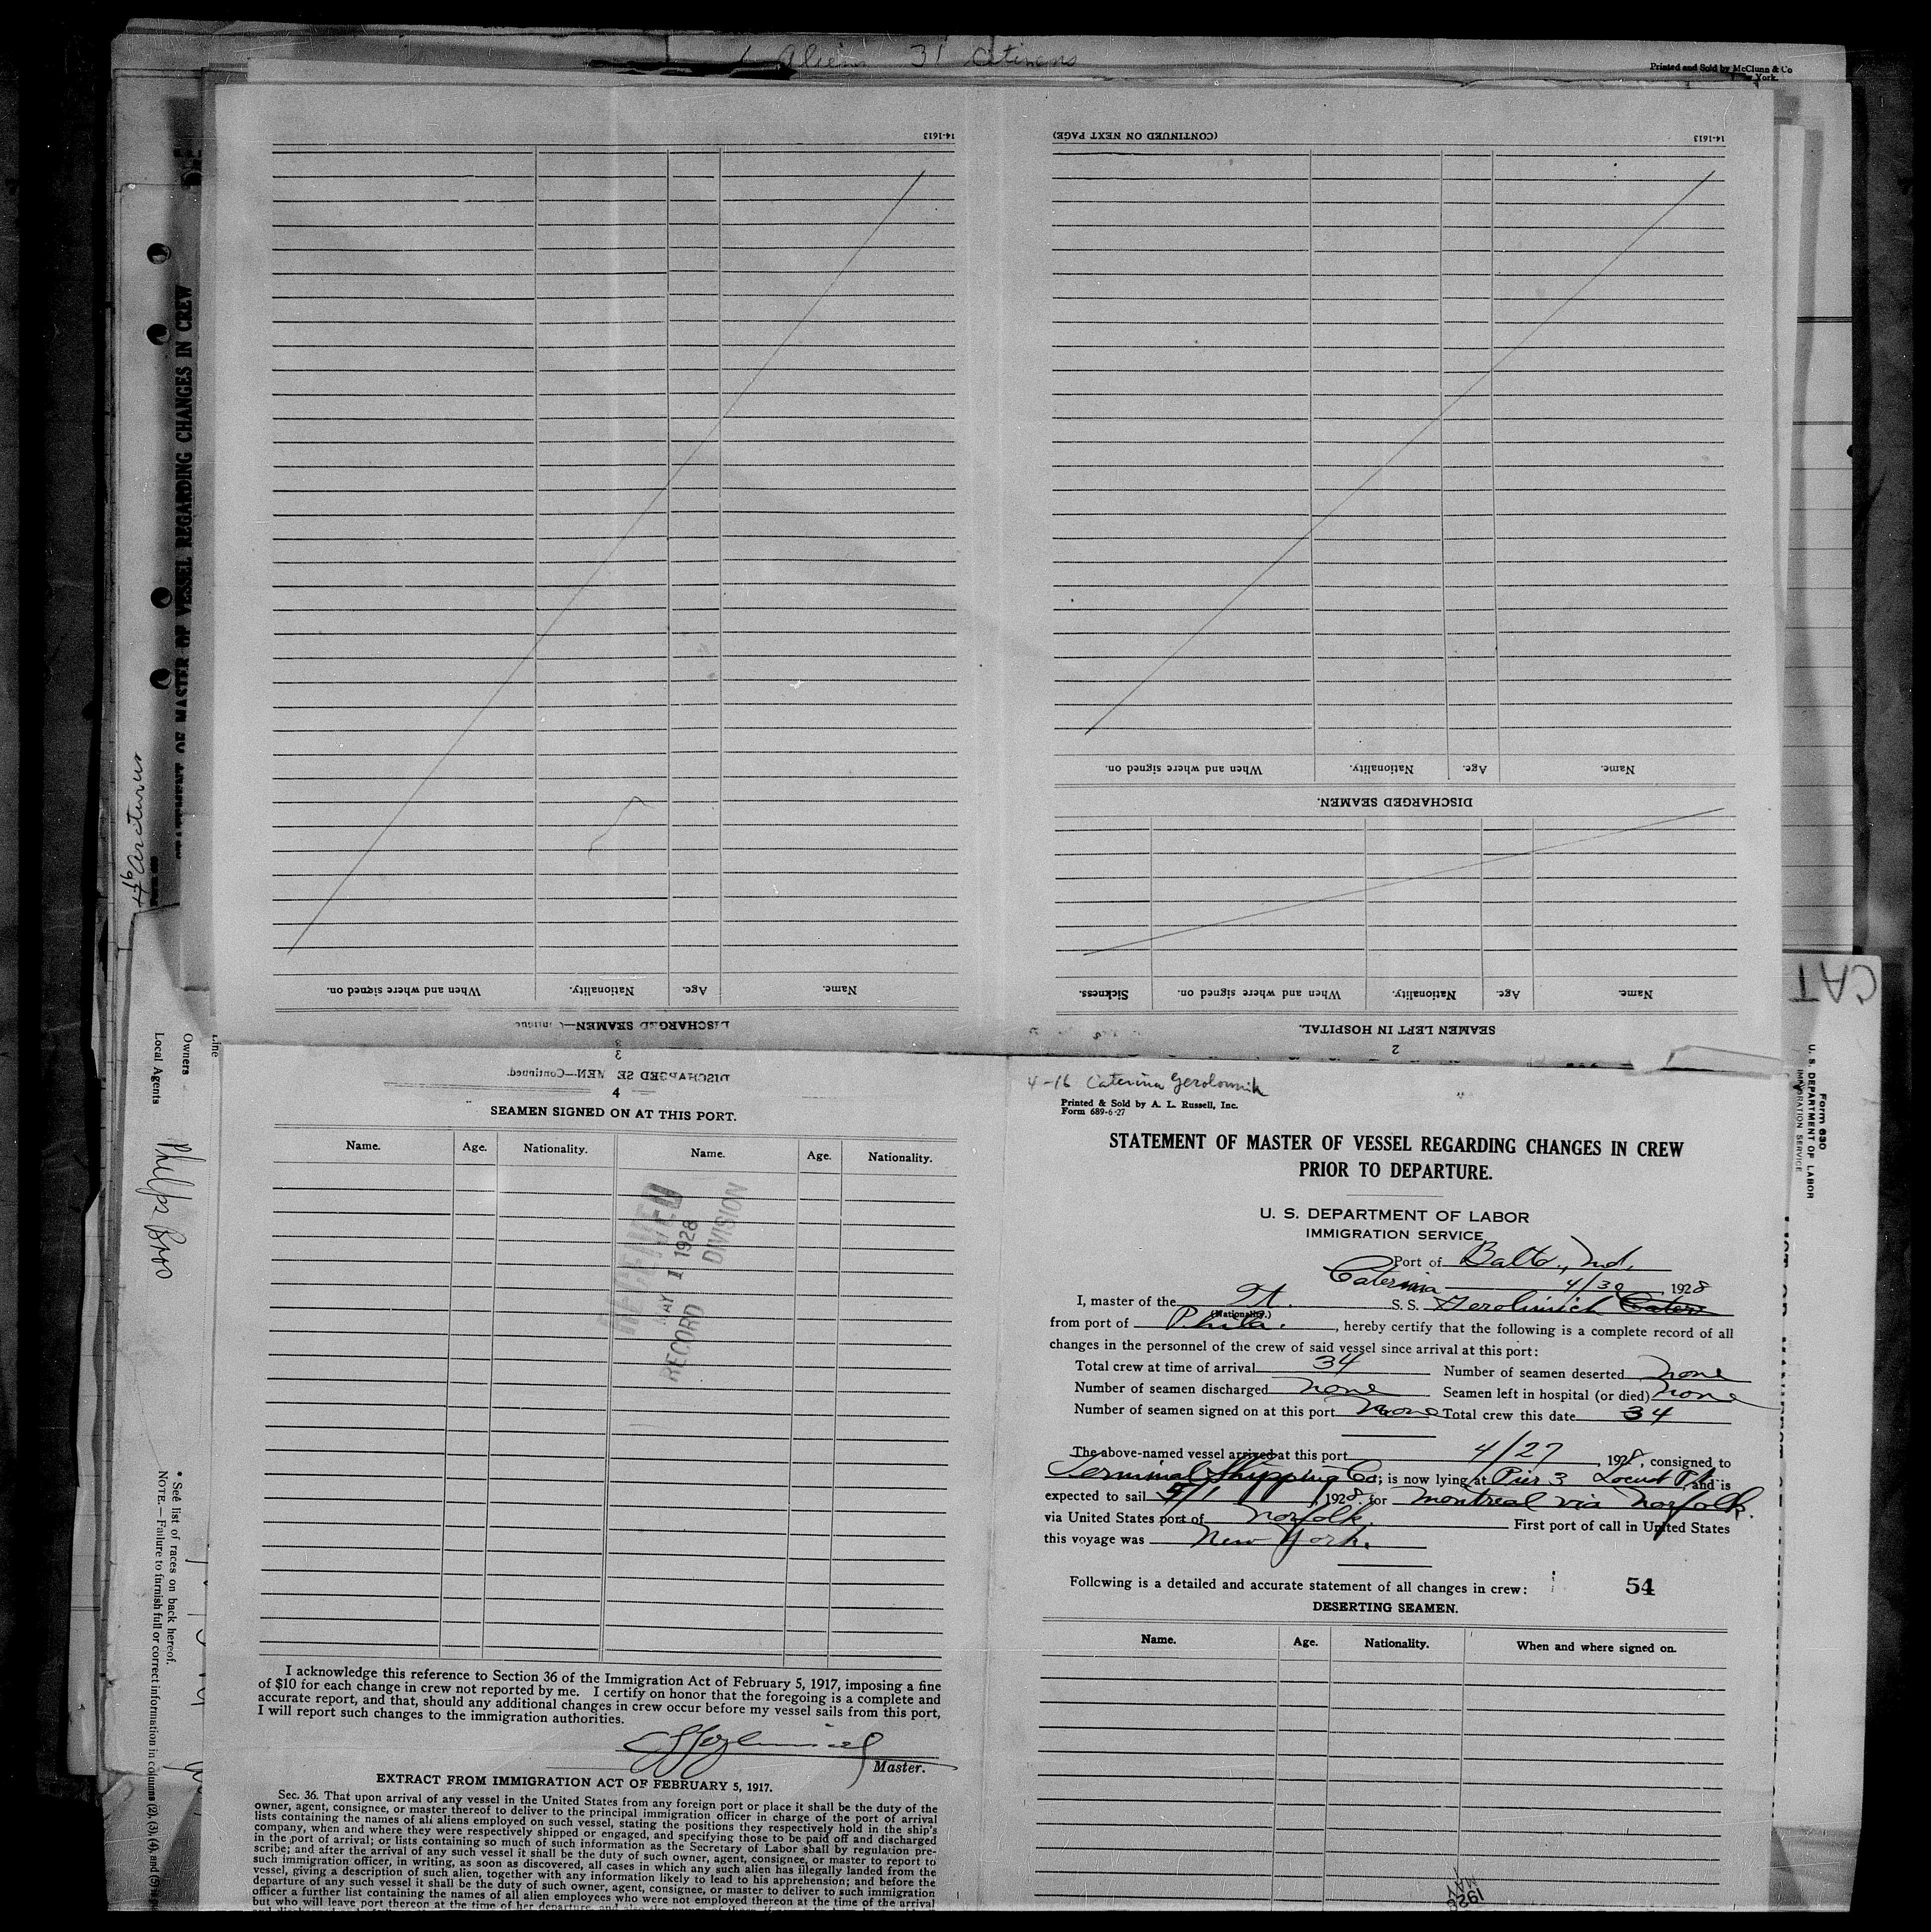 1 Aliens 31 Citizens
Printed and Sold by McClunn & Co
New York.
14-1613
(CONTINUED ON NEXT PAGE)
14-1613
Name.
Age.
Nationality.
When and where signed on.
DISCHARGED SEAMEN.
Name.
Age.
Nationality.
When and where signed on.
Sickness.
SEAMEN LEFT IN HOSPITAL.
2
Name.
Age.
Nationality.
When and where signed on.
DISCHARGED SEAMEN—
3
3
DISCHARGED SE MEN—Continued.
OF MASTER OF VESSEL REGARDING CHANGES IN CREW
Arcturus
Line
Owners
Local Agents
Phelps Bros
* See list of races on back hereof.
NOTE.—Failure to furnish full or correct information in columns (2), (3), (4), and (5)
CAT
Form 680
U. S. DEPARTMENT OF LABOR
IMMIGRATION SERVICE
4
SEAMEN SIGNED ON AT THIS PORT.
Name. Age. Nationality. Name. Age. Nationality.
RECEIVED
MAY 1 1928
RECORD DIVISION
I acknowledge this reference to Section 36 of the Immigration Act of February 5, 1917, imposing a fine
of $10 for each change in crew not reported by me. I certify on honor that the foregoing is a complete and
accurate report, and that, should any additional changes in crew occur before my vessel sails from this port,
I will report such changes to the immigration authorities.
Master.
EXTRACT FROM IMMIGRATION ACT OF FEBRUARY 5, 1917.
Sec. 36. That upon arrival of any vessel in the United States from any foreign port or place it shall be the duty of the
owner, agent, consignee, or master thereof to deliver to the principal immigration officer in charge of the port of arrival
lists containing the names of all aliens employed on such vessel, stating the positions they respectively hold in the ship's
company, when and where they were respectively shipped or engaged, and specifying those to be paid off and discharged
in the port of arrival; or lists containing so much of such information as the Secretary of Labor shall by regulation pre-
scribe; and after the arrival of any such vessel it shall be the duty of such owner, agent, consignee, or master to report to
such immigration officer, in writing, as soon as discovered, all cases in which any such alien has illegally landed from the
vessel, giving a description of such alien, together with any information likely to lead to his apprehension; and before the
departure of any such vessel it shall be the duty of such owner, agent, consignee, or master to deliver to such immigration
officer a further list containing the names of all alien employees who were not employed thereon at the time of the arrival
but who will leave port thereon at the time of her departure, and also the names of
4-16 Caterina Gerolimich
Printed & Sold by A. L. Russell, Inc.
Form 689-6-27
STATEMENT OF MASTER OF VESSEL REGARDING CHANGES IN CREW
PRIOR TO DEPARTURE.
U. S. DEPARTMENT OF LABOR
IMMIGRATION SERVICE
Port of Balto., Md.
Caterina 4/30 1928
I, master of the It. S. S. Gerolimich Cater
(Nationality.)
from port of Phila. , hereby certify that the following is a complete record of all
changes in the personnel of the crew of said vessel since arrival at this port:
Total crew at time of arrival 34 Number of seamen deserted none
Number of seamen discharged none Seamen left in hospital (or died) none
Number of seamen signed on at this port None Total crew this date 34
The above-named vessel arrived at this port 4/27, 1928, consigned to
Terminal Shipping Co; is now lying at Pier 3 Locust Pt, and is
expected to sail 5/1, 1928 for Montreal via Norfolk.
via United States port of Norfolk. First port of call in United States
this voyage was New York.
Following is a detailed and accurate statement of all changes in crew: 54
DESERTING SEAMEN.
Name. Age. Nationality. When and where signed on.
MAY
1928